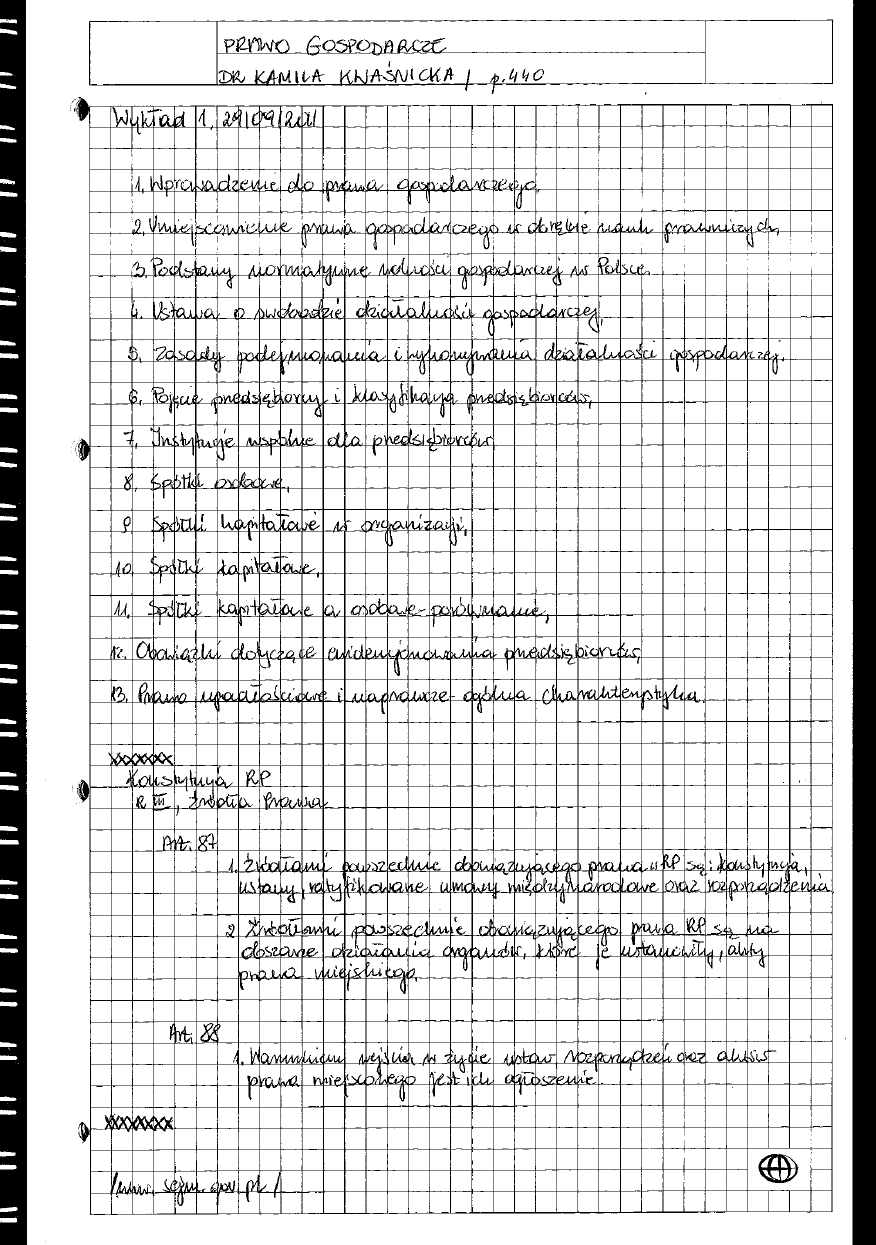 PRAWO GOSPODARCZE
DR KAMILA KWAŚNICKA / p.440
Wykład 1, 29/09/2011
1. Wprowadzenie do prawa gospodarczego,
2. Umiejscowienie prawa gospodarczego w obrębie nauk prawniczych,
3. Podstawy normatywne wolności gospodarczej w Polsce.
4. Ustawa o swobodzie działalności gospodarczej,
5. Zasady podejmowania i wykonywania działalności gospodarczej.
6. Pojęcie przedsiębiorcy i klasyfikacja przedsiębiorców,
7. Instytucje wspólne dla przedsiębiorców,
8. Spółki osobowe,
9. Spółki kapitałowe w organizacji,
10. Spółki kapitałowe,
11. Spółki kapitałowe a osobowe - porównanie,
12. Obowiązki dotyczące ewidencjonowania przedsiębiorców,
13. Prawo upadłościowe i naprawcze - ogólna charakterystyka.
xxxxxxx
Konstytucja RP
R III, Źródła Prawa
Art. 87
1. Źródłami powszechnie obowiązującego prawa w RP są: konstytucja,
ustawy, ratyfikowane umowy międzynarodowe oraz rozporządzenia
2 Źródłami powszechnie obowiązującego prawa RP są na
obszarze działania organów, które je ustanowiły, akty
prawa miejskiego.
Art. 88
1. Warunkiem wejścia w życie ustaw rozporządzeń oraz aktów
prawa miejscowego jest ich ogłoszenie.
xxxxxxxx
/www.sejm.gov.pl/